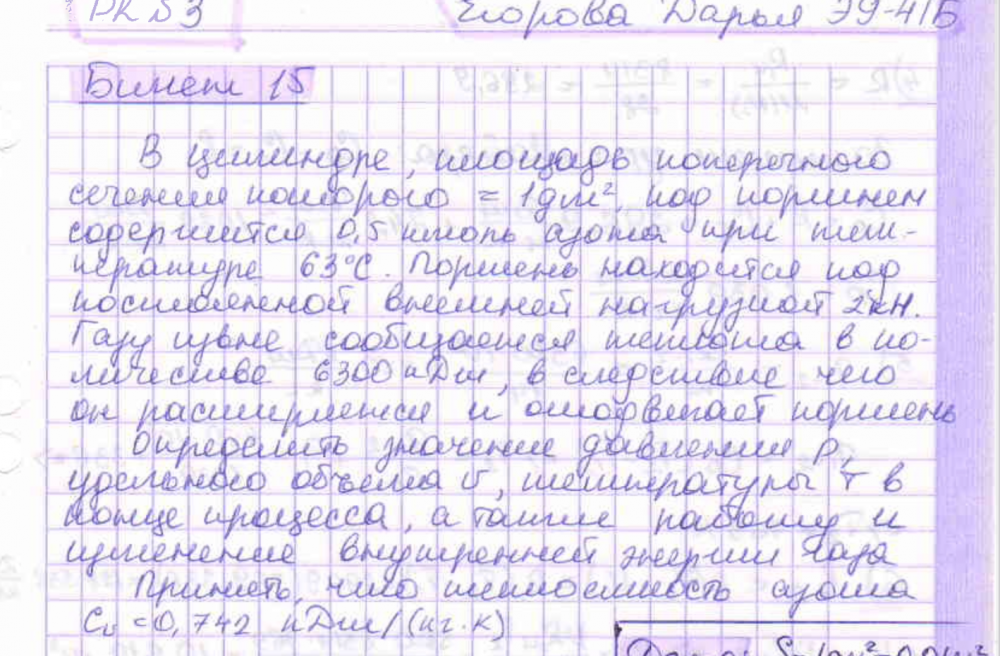 РК №3 Егорова Дарья Э9-41Б
Билет 15
В цилиндре, площадь поперечного
сечения которого = 1дм², под поршнем
содержится 0,5 кмоль азота при тем-
пературе 63°С. Поршень находится под
постоянной внешней нагрузкой 2кН.
Газу извне сообщается теплота в ко-
личестве 6300 кДж, в следствие чего
он расширяется и отодвигает поршень
Определить значение давления p,
удельного объема υ, температуры T в
конце процесса, а также работу и
изменение внутренней энергии газа
Принять, что теплоемкость азота
Cυ = 0,742 кДж/(кг·К)